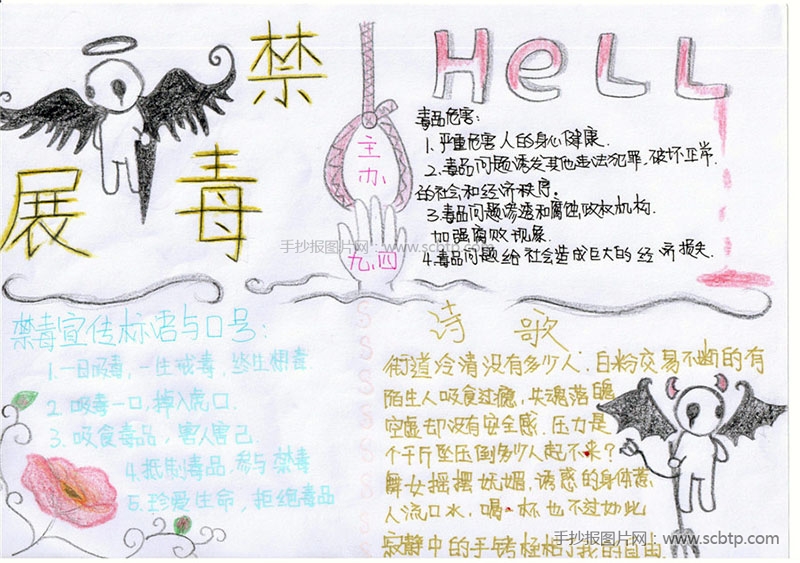 禁毒展
主办
九.四
HeLL
毒品危害:
1.严重危害人的身心健康.
2.毒品问题诱发其他违法犯罪,破坏正常
的社会和经济秩序.
3.毒品问题渗透和腐蚀政权机构.
加强腐败现象.
4.毒品问题给社会造成巨大的经济损失.
手抄报图片网:www.scbtp.com
禁毒宣传标语与口号:
1.一日吸毒,一生戒毒,终生
2.吸毒一口,掉入虎口.
3.吸食毒品,害人害己.
4.抵制毒品.参与禁毒
5.珍爱生命,拒绝毒品
诗 歌
街道冷清没有多少人.白粉交易不断的有
陌生人吸食过瘾,失魂落魄
空虚却没有安全感.压力是
个千斤坠压倒多少人起不来?
舞女摇摆妩媚.诱惑的身体惹
人流口水,喝一杯也不过如此
寂静中的手铐桎梏了我的自由.
手抄报图片网:www.scbtp.com